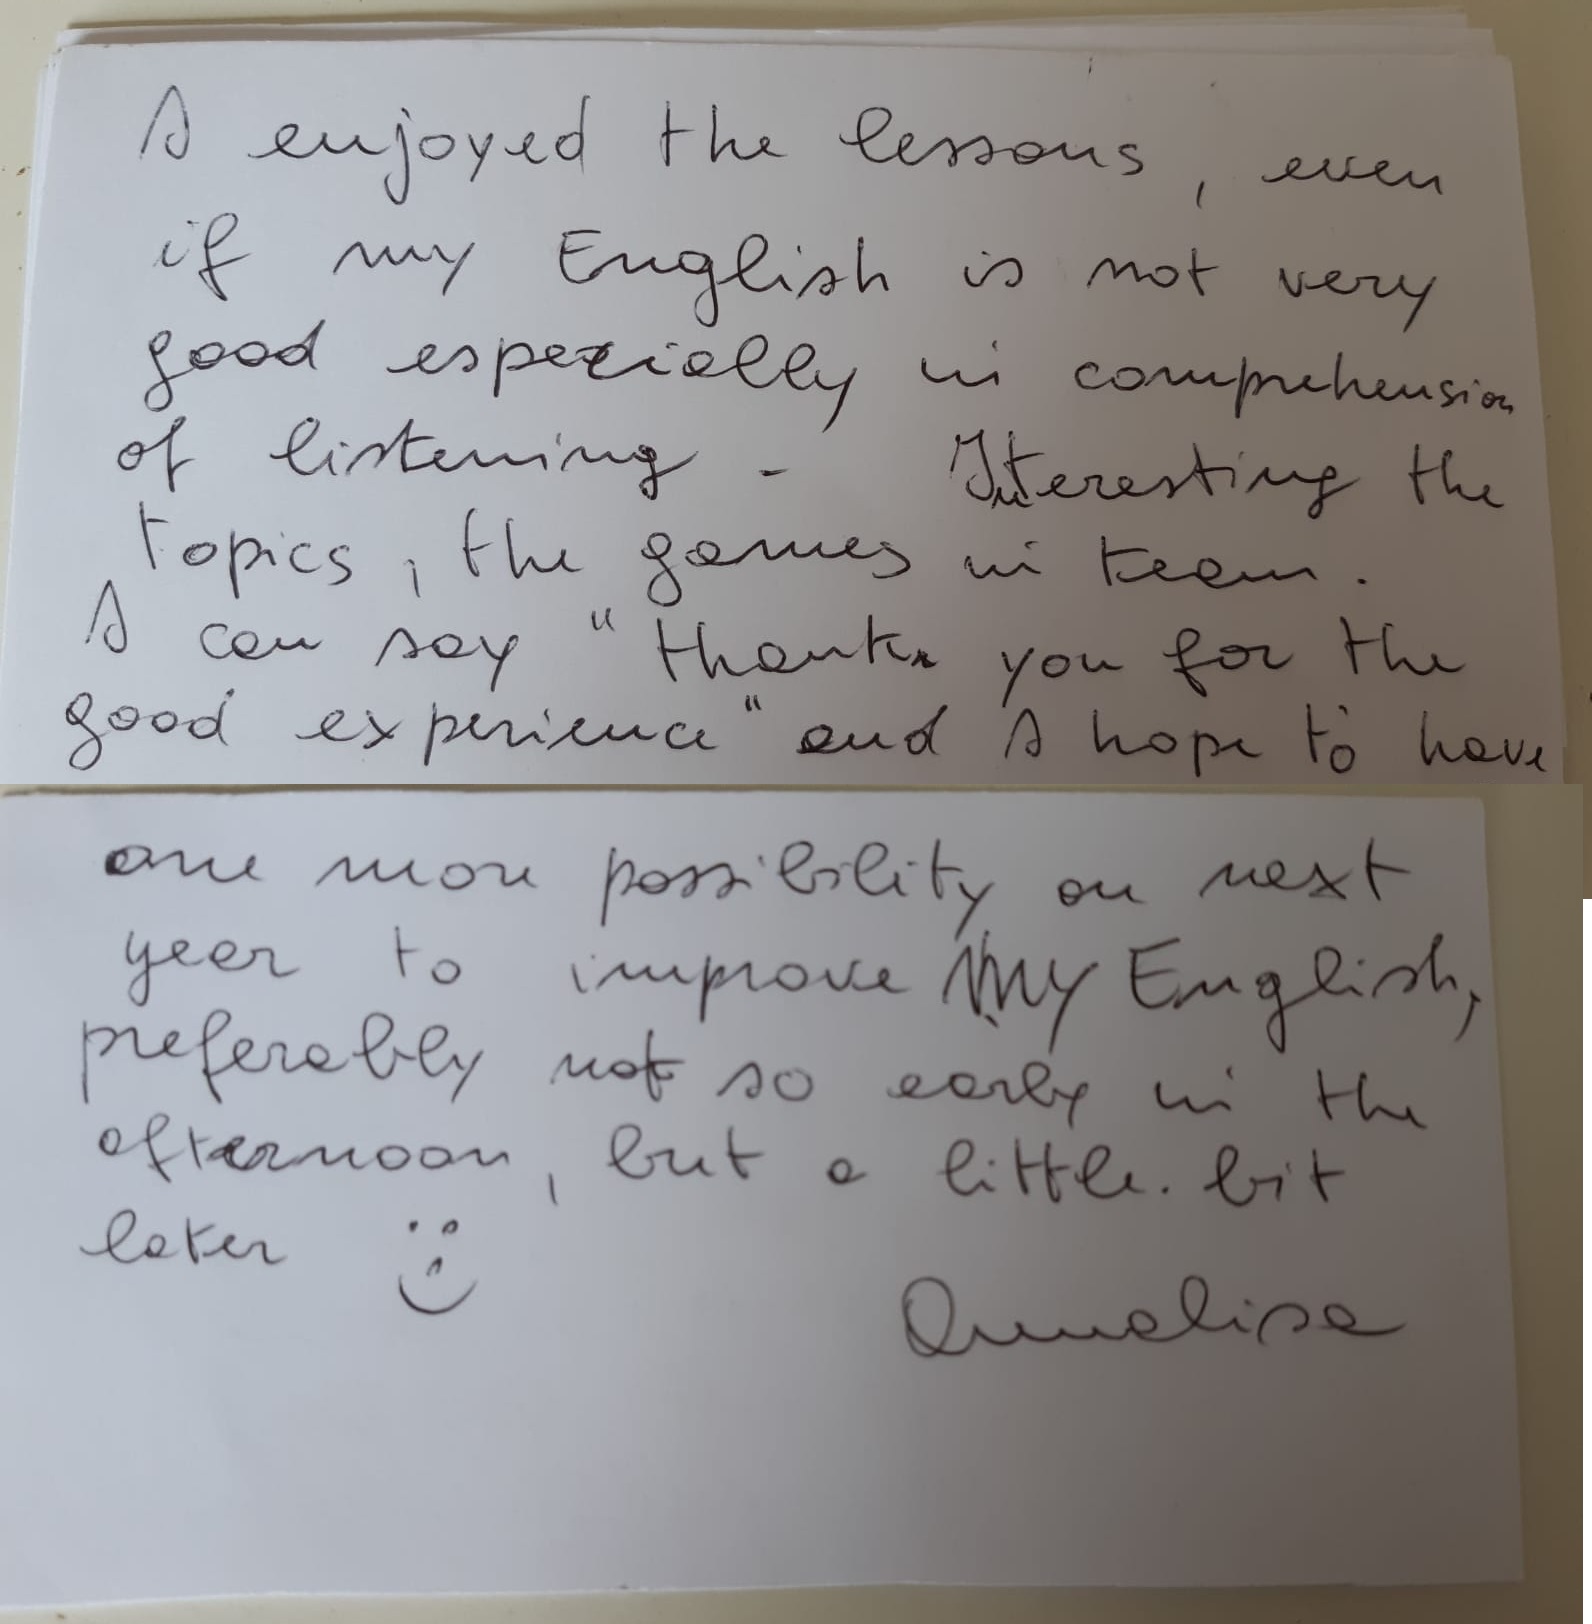 I enjoyed the lessons, even
if my English is not very
good especially in comprehension
of listening - Interesting the
topics, the games in team.
I can say "thank you for the
good experience" and I hope to have
one more possibility on next
year to improve my English,
preferably not so early in the
afternoon, but a little. bit
later
Annalisa